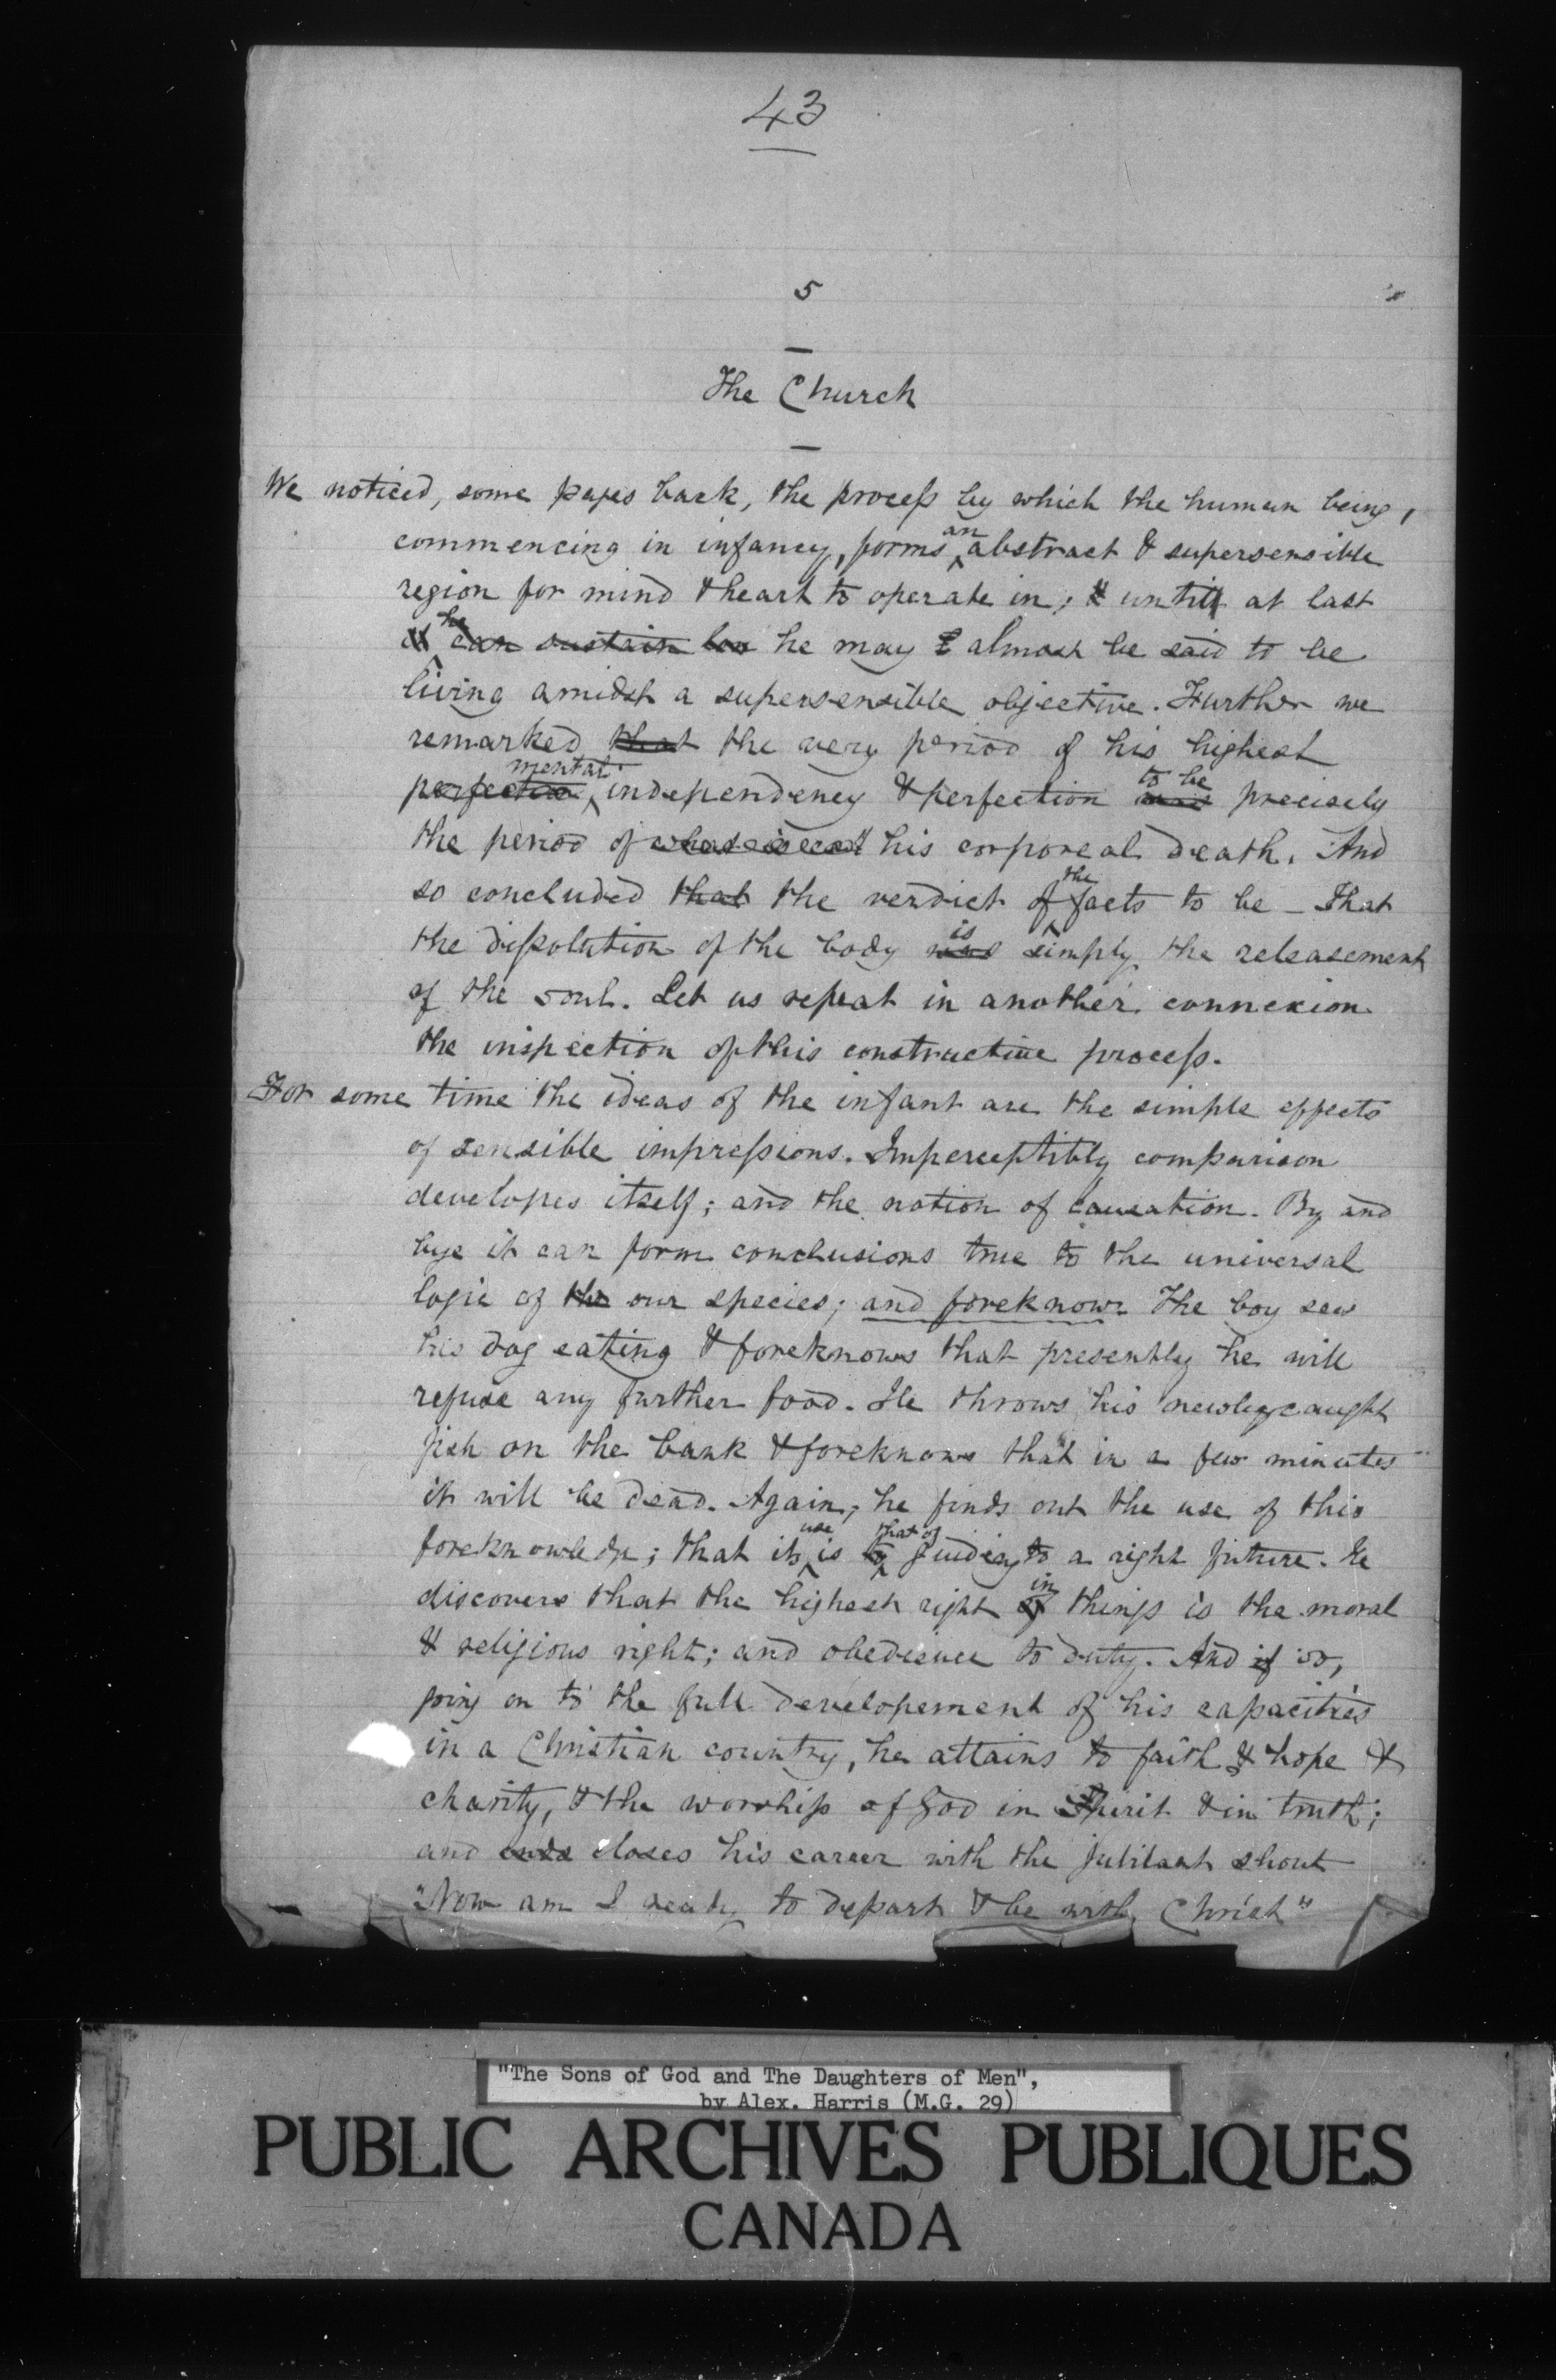 43
5
The Church
We noticed, some pages back, the process by which the human being,
commencing in infancy, forms an abstract & supersensible
region for mind & heart to operate in; & until at last
he can sustain he may almost be said to be
living amidst a supersensible objective. Further we
remarked that the very period of his highest
perfection mental independency & perfection was to be precisely
the period of his corporeal death. And
so concluded that the verdict of the facts to be – That
the dissolution of the body was is simply the releasement
of the soul. Let us repeat in another connexion
the inspection of this constructive process.
For some time the ideas of the infant are the simple effects
of sensible impressions. Imperceptibly comparison
developes itself; and the notion of causation. By and
bye it can form conclusions true to the universal
logic of the our species; and foreknow. The boy sees
his dog eating & foreknows that presently he will
refuse any further food. He throws his newly caught
fish on the bank & foreknows that in a few minutes
it will be dead. Again, he finds out the use of this
foreknowledge; that its use is to that of guiding to a right future. He
discovers that the highest right of in things is the moral
& religious right; and obedience to duty. And if so,
going on to the full developement of his capacities
in a Christian country, he attains to faith & hope &
charity, & the worship of God in Spirit & in truth;
and ends closes his career with the jubilant shout
"Now am I ready to depart & be with Christ"
"The Sons of God and The Daughters of Men",
by Alex. Harris (M.G. 29)
PUBLIC ARCHIVES PUBLIQUES
CANADA